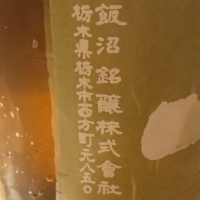 飯沼銘醸株式會社
栃木県栃木市西方町元八五〇